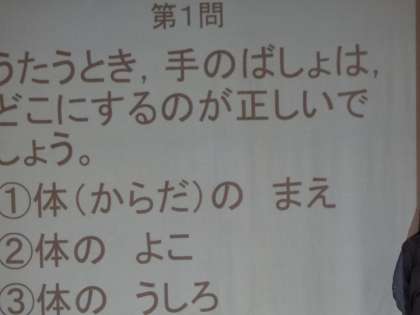 第1問
うたうとき,手のばしょは,
どこにするのが正しいで
しょう。
①体(からだ)の　まえ
②体の　よこ
③体の　うしろ